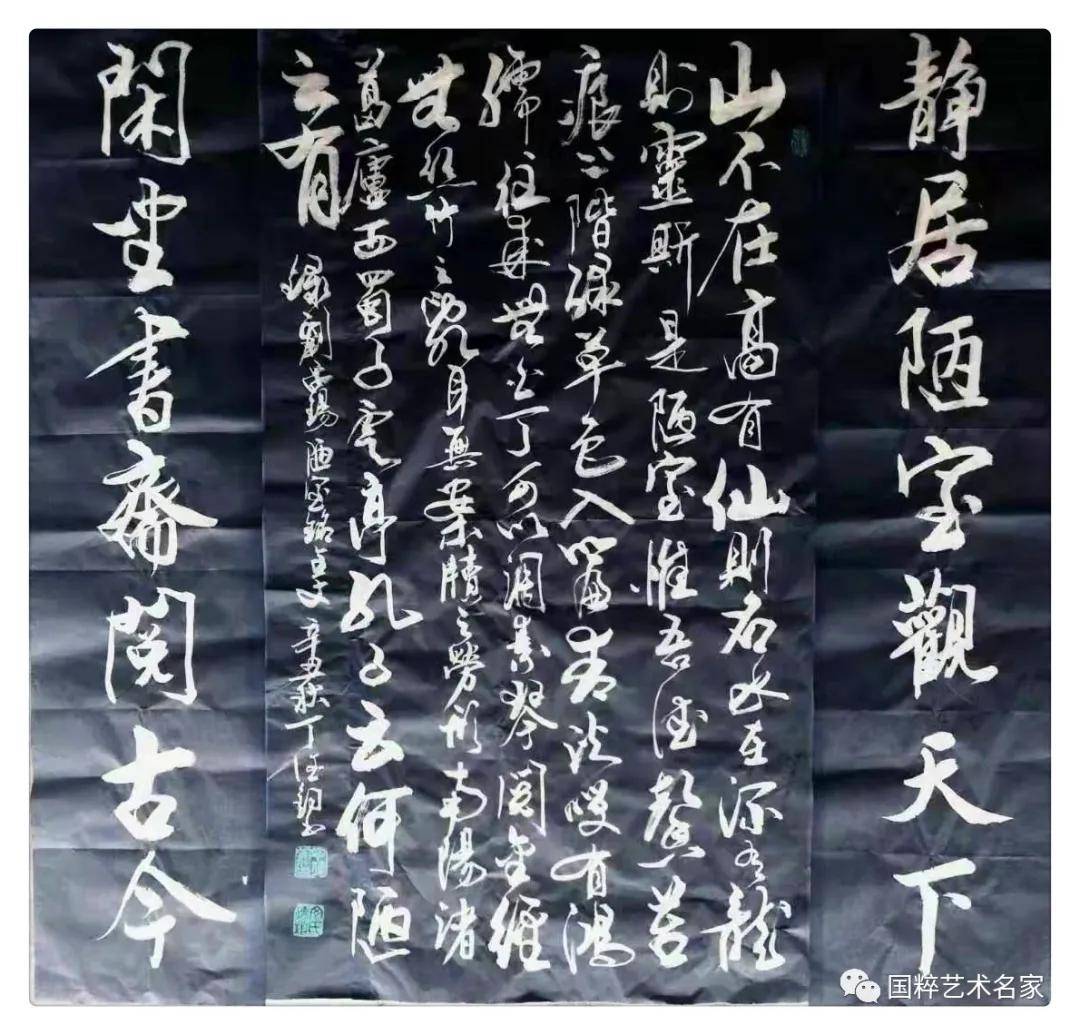 静居陋室觀天下
山不在高有仙則名水在深有龍
則靈斯是陋室惟吾德馨苔
痕上階緑草色入簾青談笑有鴻
儒往來無白丁可以調素琴閱金經
無絲竹之亂耳無案牘之勞形南陽諸
葛廬西蜀子雲亭孔子云何陋
之有
録劉禹錫陋室銘全文 辛丑秋丁
閑坐書齋閱古今
国粹艺术名家